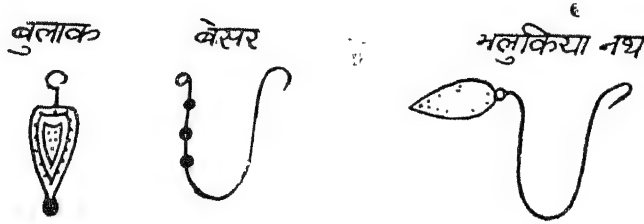 बुलाक
बेसर
भलुकिया नथ